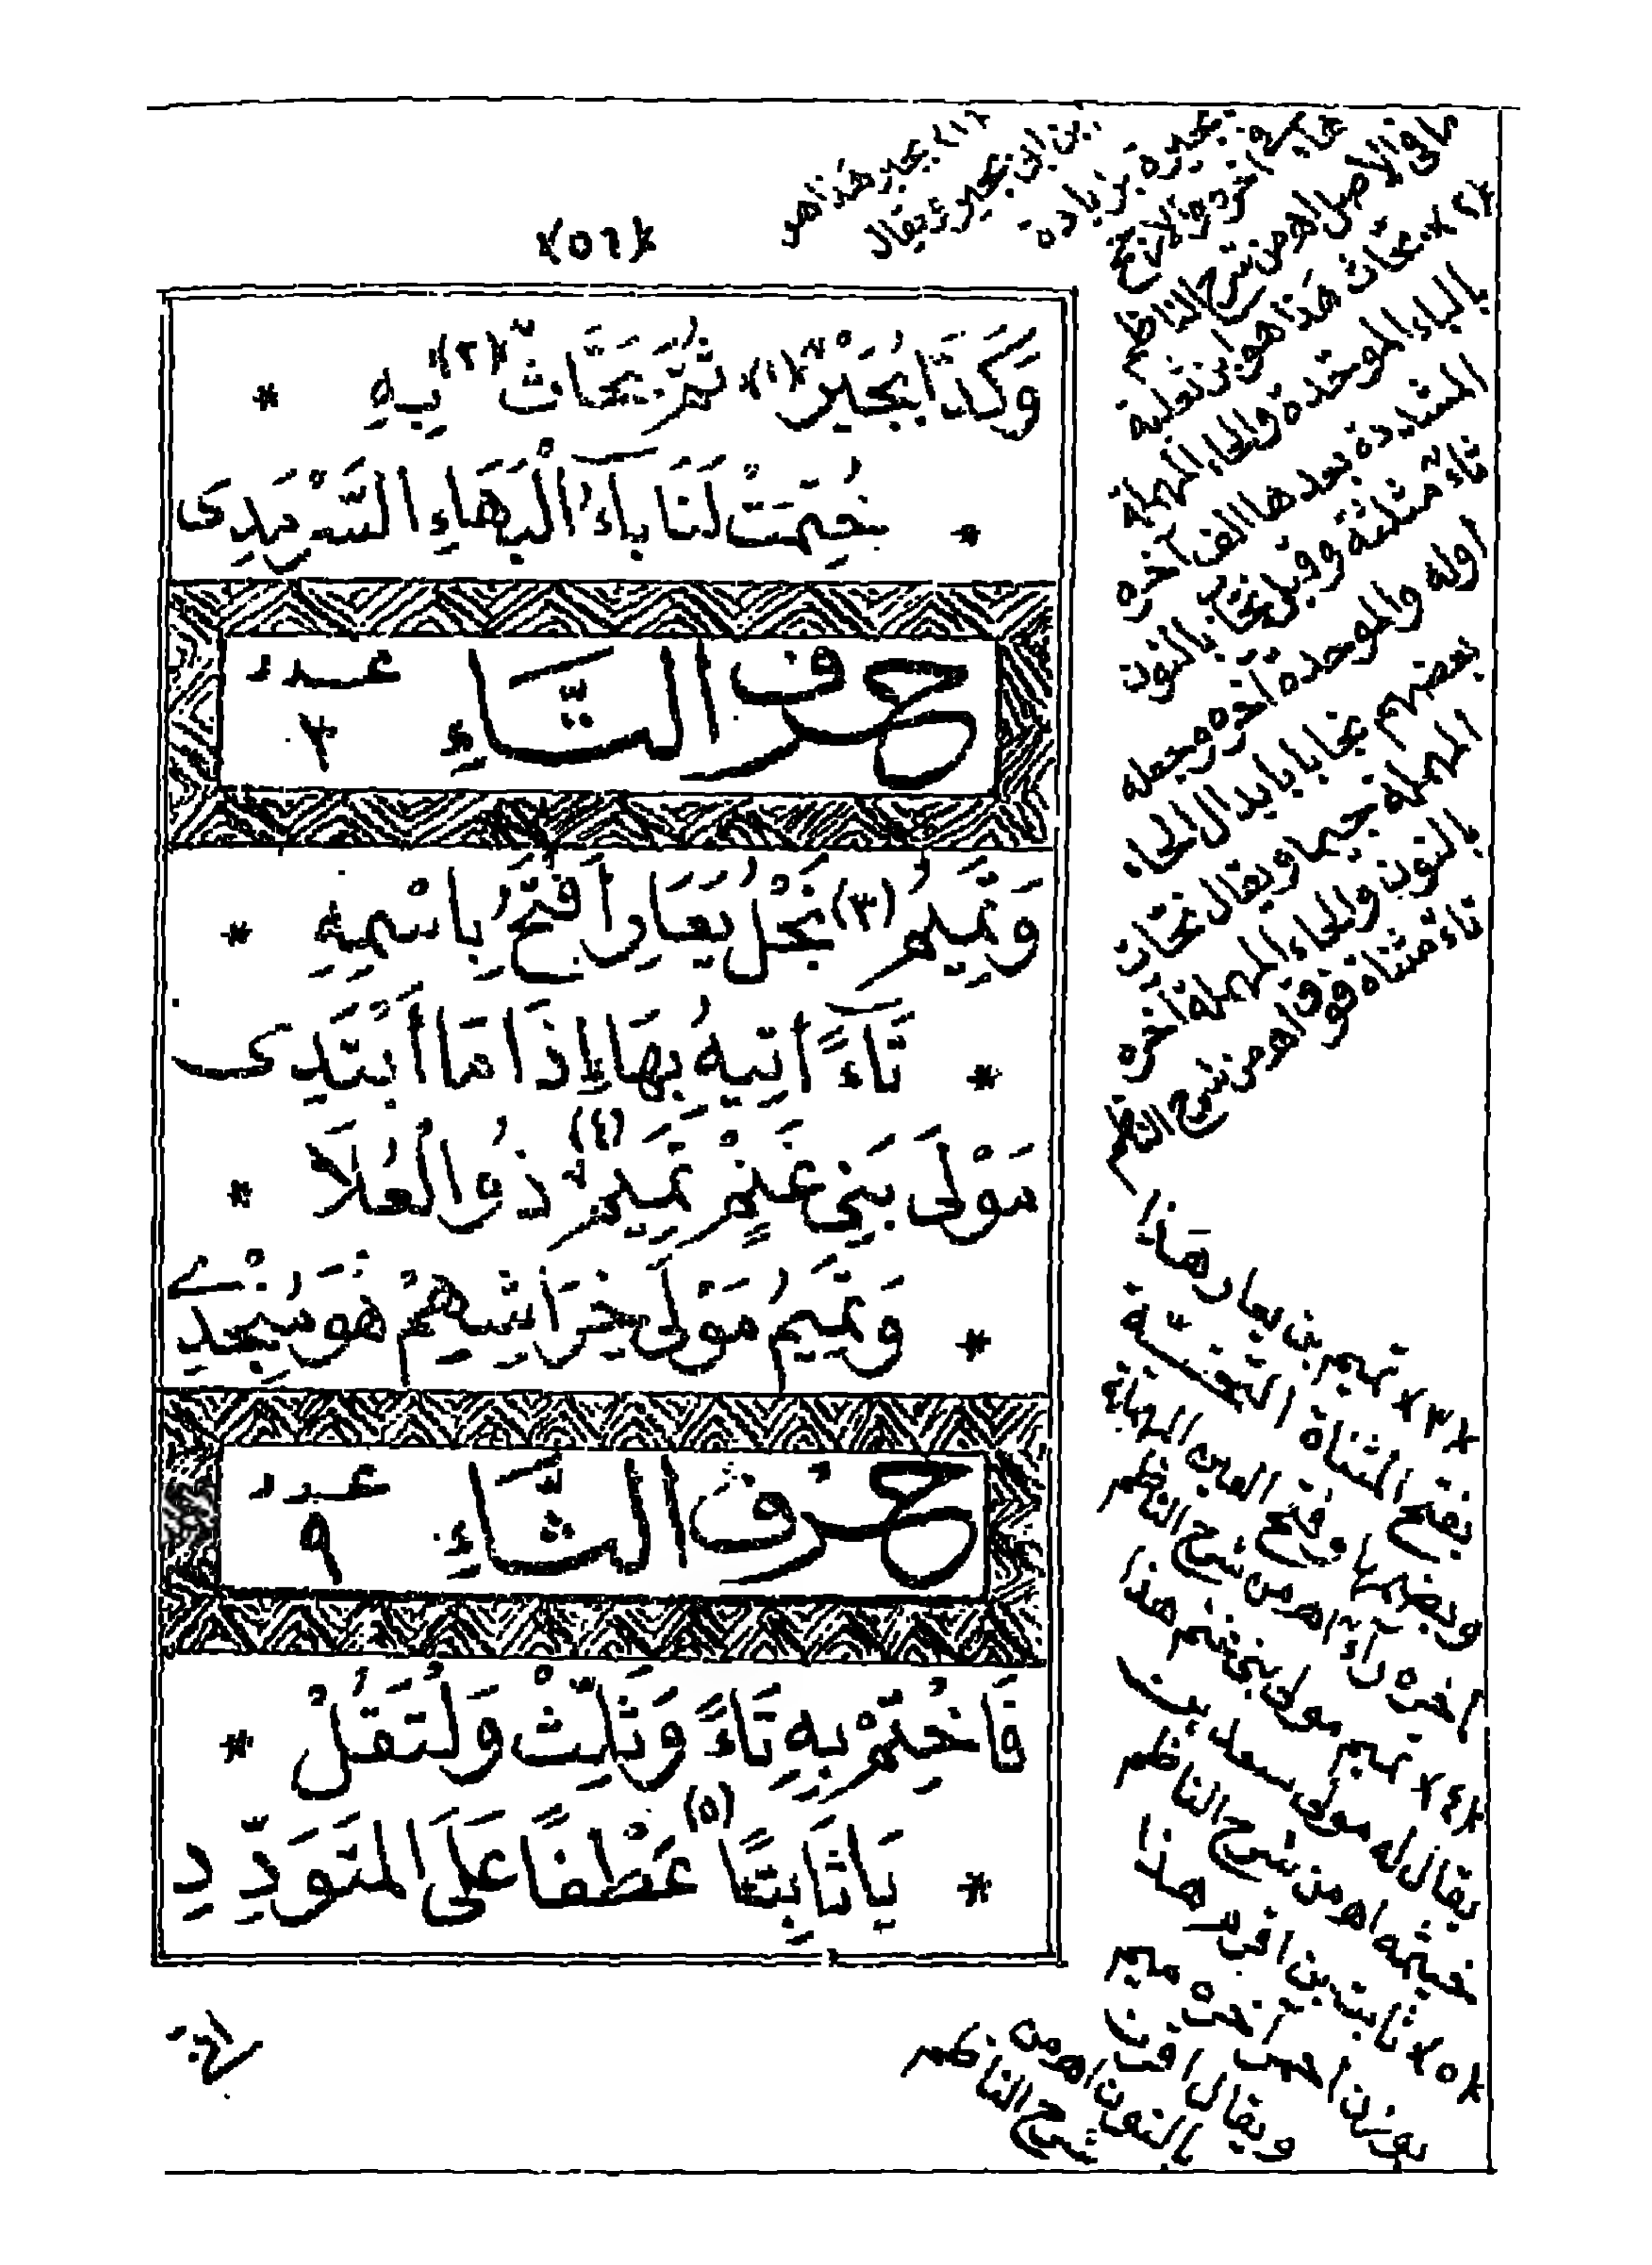 (٥٦)
وَكَذَا بُجَيْرٌ (١) ثُمَّ بَحَّاثٌ (٢) بِهِ *
* خُتِمَتْ لَنَا بَاءُ الْبَهَاءِ السَّرْمَدِى
حرف التَّاءِ عدد ٣
وَتَمِيمُ (٣) نَجْلُ يَعَارِ افْتَحُ بِاسْمِهِ *
* تَاءً اتِيهُ بِهَا إِذَا مَا ابْتَدَى
مَوْلَى بَنِى غَنْمٍ تَمِيمٌ (٤) ذُو الْعُلَا *
* وَتَمِيمُ مَوْلَى خِرَاشِهِمْ هُوَ مُنْجِدِى
حرْف الثَّاءِ عدد ٩
فَاخْتِمْ بِهِ تَاءً وَثَلِّثْ وَلْتَقُلْ *
* يَا ثَابِتًا (٥) عَطْفًا عَلَى الْمُتَوَدِّدِ
(١) بجير هذا هو
ابن ابى بجير ويقال
بجيرة بزيادة
ما فى الاصل اهـ من شرح الناظم
(٢) بحاث هذا هو ابن ثعلبة
بالباء الموحدة والحاء المهملة
المشددة بعدها الف آخره
ثاء مثلثة وقيل نحاب بالنون
اوله والموحدة آخره وجعله
بعضهم بجابا بابدال الحاء
المهملة جيما ويقال نحات
بالنون والحاء المهملة آخره
تاء مثناة فوق اهـ من شرح الناظم
(٣) تميم بن يعار هذا
بفتح المثناة التحتية
وبضمها وفتح العين المهملة
آخره راء اهـ من شرح الناظم
(٤) تميم مولى بنى غنم هذا
يقال له مولى سعد بن
خيثمة اهـ من شرح الناظم
(٥) ثابت بن اقرم هذا
بوزن احمر آخره ميم
ويقال اقرن
بالنون اهـ من
شرح الناظم